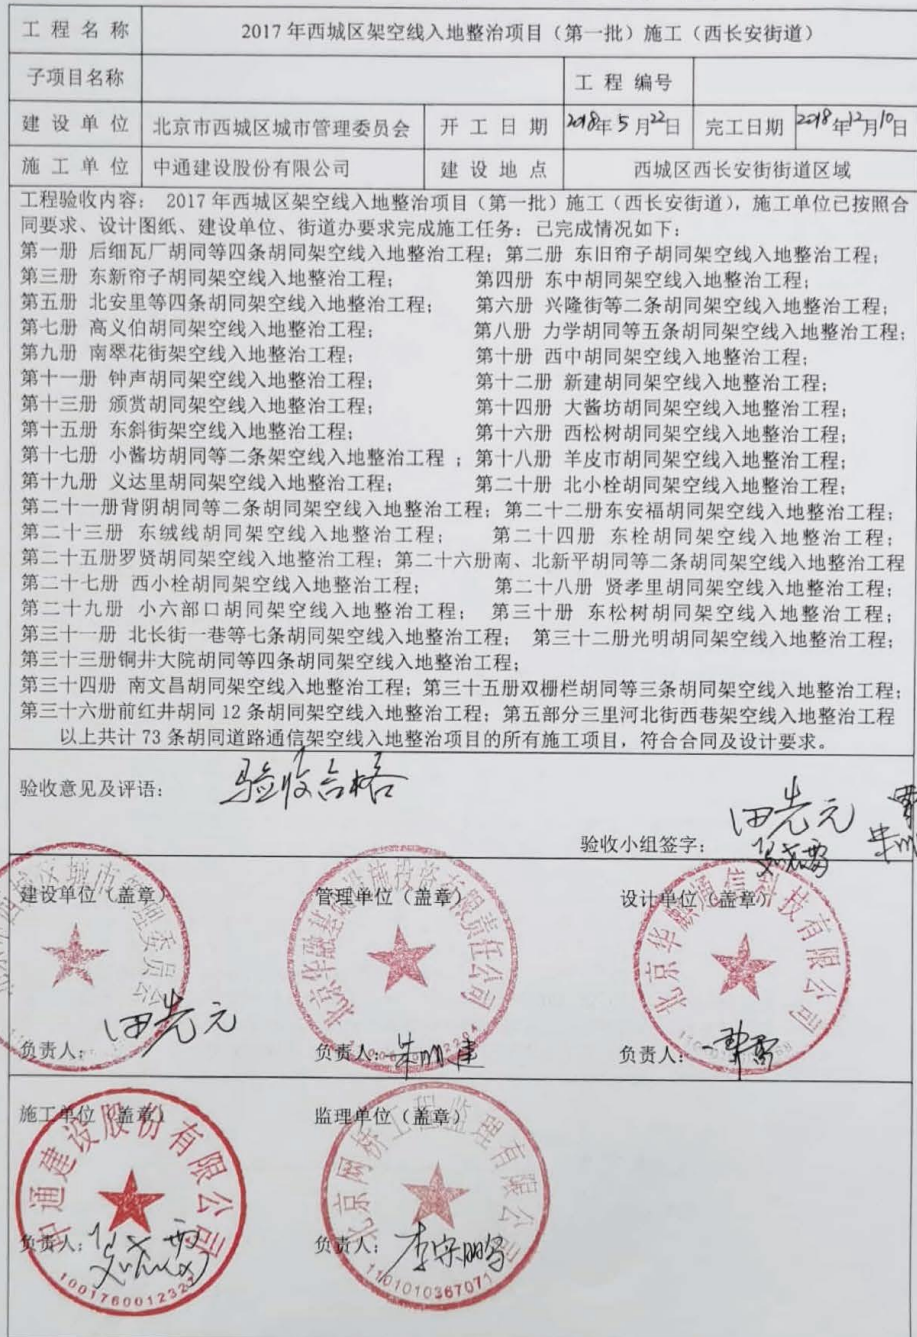 工程名称 2017年西城区架空线入地整治项目（第一批）施工（西长安街道）
子项目名称 工程编号
建设单位 北京市西城区城市管理委员会 开工日期 2018年5月22日 完工日期 2018年12月10日
施工单位 中通建设股份有限公司 建设地点 西城区西长安街街道区域
工程验收内容： 2017年西城区架空线入地整治项目（第一批）施工（西长安街道），施工单位已按照合
同要求、设计图纸、建设单位、街道办要求完成施工任务：已完成情况如下：
第一册 后细瓦厂胡同等四条胡同架空线入地整治工程；第二册 东旧帘子胡同架空线入地整治工程；
第三册 东新帘子胡同架空线入地整治工程； 第四册 东中胡同架空线入地整治工程；
第五册 北安里等四条胡同架空线入地整治工程； 第六册 兴隆街等二条胡同架空线入地整治工程；
第七册 高义伯胡同架空线入地整治工程； 第八册 力学胡同等五条胡同架空线入地整治工程；
第九册 南翠花街架空线入地整治工程； 第十册 西中胡同架空线入地整治工程；
第十一册 钟声胡同架空线入地整治工程； 第十二册 新建胡同架空线入地整治工程；
第十三册 颁赏胡同架空线入地整治工程； 第十四册 大酱坊胡同架空线入地整治工程；
第十五册 东斜街架空线入地整治工程； 第十六册 西松树胡同架空线入地整治工程；
第十七册 小酱坊胡同等二条架空线入地整治工程 ；第十八册 羊皮市胡同架空线入地整治工程；
第十九册 义达里胡同架空线入地整治工程； 第二十册 北小栓胡同架空线入地整治工程；
第二十一册背阴胡同等二条胡同架空线入地整治工程；第二十二册东安福胡同架空线入地整治工程；
第二十三册 东绒线胡同架空线入地整治工程； 第二十四册 东栓胡同架空线入地整治工程；
第二十五册罗贤胡同架空线入地整治工程；第二十六册南、北新平胡同等二条胡同架空线入地整治工程
第二十七册 西小栓胡同架空线入地整治工程； 第二十八册 贤孝里胡同架空线入地整治工程；
第二十九册 小六部口胡同架空线入地整治工程； 第三十册 东松树胡同架空线入地整治工程；
第三十一册 北长街一巷等七条胡同架空线入地整治工程； 第三十二册光明胡同架空线入地整治工程；
第三十三册铜井大院胡同等四条胡同架空线入地整治工程；
第三十四册 南文昌胡同架空线入地整治工程；第三十五册双栅栏胡同等三条胡同架空线入地整治工程；
第三十六册前红井胡同12条胡同架空线入地整治工程；第五部分三里河北街西巷架空线入地整治工程
以上共计73条胡同道路通信架空线入地整治项目的所有施工项目，符合合同及设计要求。
验收意见及评语： 验收合格
验收小组签字： 田先元
建设单位（盖章） 管理单位（盖章） 设计单位（盖章）
北京华融基础设施投资有限责任公司
北京华融通信科技有限公司
负责人： 田先元 负责人： 负责人：
施工单位（盖章） 监理单位（盖章）
中通建设股份有限公司
北京网桥工程监理有限公司
负责人： 负责人：
1101010367071